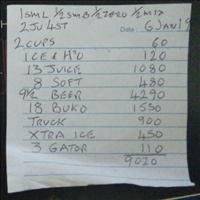 1 SML 1/2 SMB 1/2 ZERO 1/2 MIX
2 JU 4ST Date: 6 JAN 19
2 CUPS 60
ICE & H2O 120
13 JUICE 1080
8 SOFT 480
9 1/2 BEER 4290
18 BUKO 1530
TRUCK 900
XTRA ICE 450
3 GATOR 110
9020